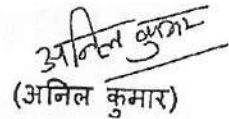 अनिल कुमार
(अनिल कुमार)